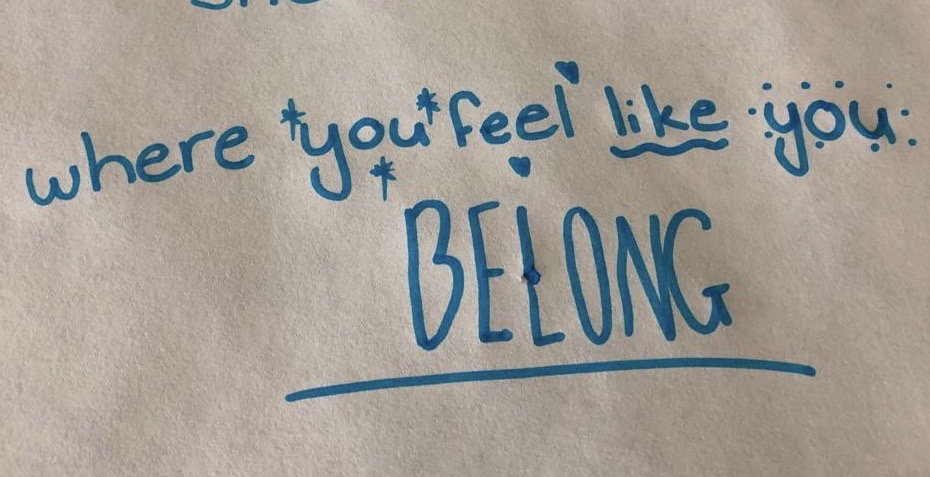 where *you* feel like you
BELONG